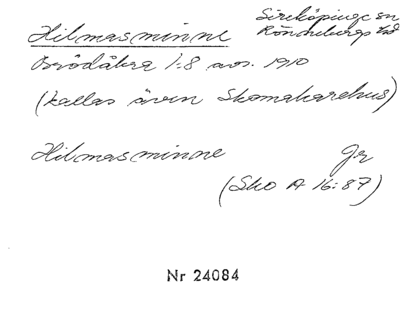 Hilmasminne Sireköpinge sn
Rönnebergs hd
Brödåkra 1:8 avs. 1910
(kallas även Skomakarehus)
Hilmasminne Gr
(Sko A 16:87)
Nr 24084